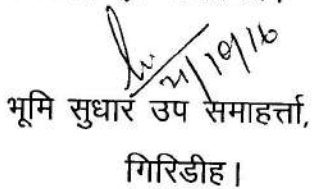 21/10/16
भूमि सुधार उप समाहर्त्ता,
गिरिडीह।